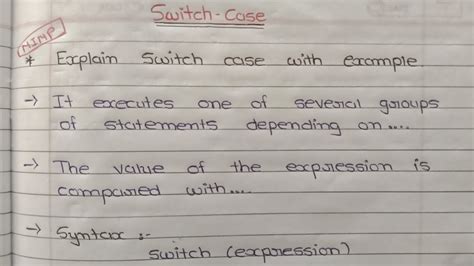 Switch-Case
M.IMP
* Explain Switch case with example.
→ It executes one of several groups
of statements depending on....
→ The value of the expression is
compared with....
→ Syntax :-
switch (expression)